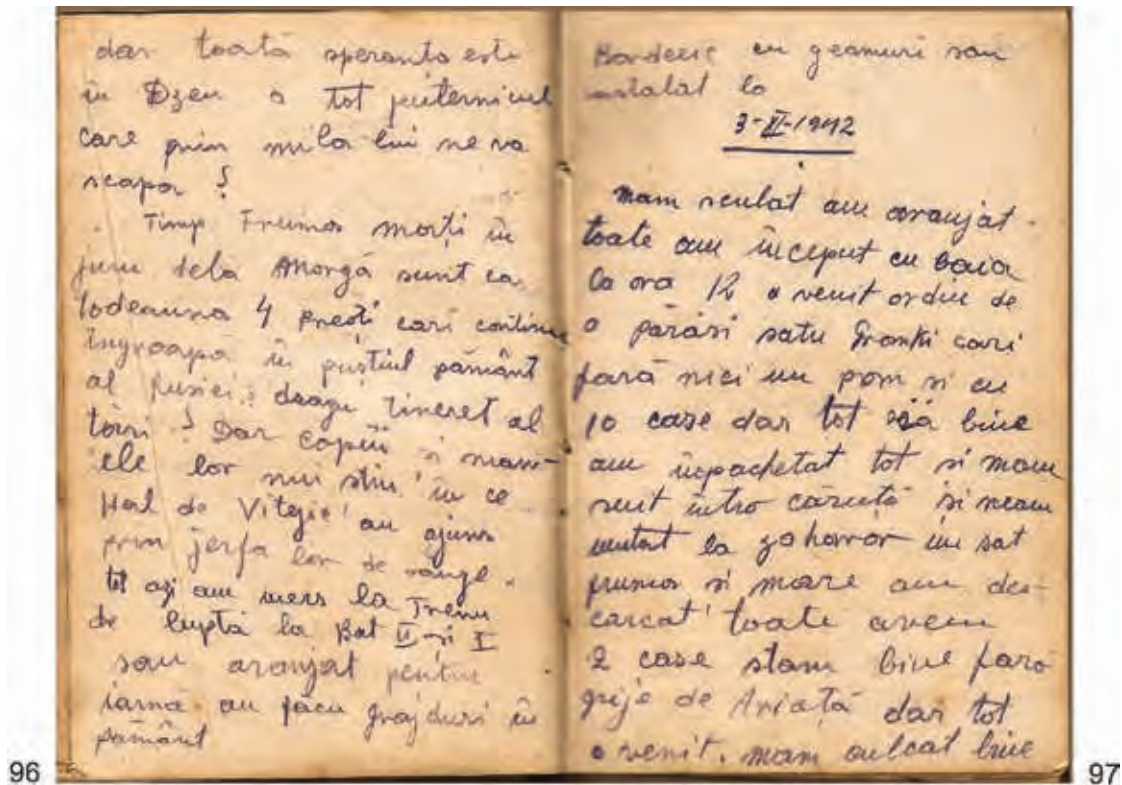 dar toată speranta este
in Dzeu a tot puternicul
care prin mila lui ne va
scapa !
Timp Frumos morți in
juru dela Morgă sunt ca
todeauna 4 preoti cari continu
îngroapă in pustiul pământ
al Rusiei: dragu Tineret al
tării ! Dar copiii si mami-
ele lor nui stiu in ce
Hal de Vitejie au ajuns
prin jerfa lor de sânge.
tot azi am mers la Trenu
de luptă la Bat II si I
sau aranjat pentru
iarna au facu grajduri in
pământ
Bordeeie cu geamuri sau
instalat la
3-II-1942
Mam sculat am aranjat
toate am început cu baia
la ora 12 a venit ordin de
a părăsi satu Gronki cari
fară nici un pom si cu
10 case dar tot bine
am inpachetat tot si mam
suit intro căruță si neam
mutat la gohoror in sat
frumos si mare am des-
carcat toate avem
2 case stam bine fară
grije de Aviată dar tot
o venit. mam culcat bine
96
97